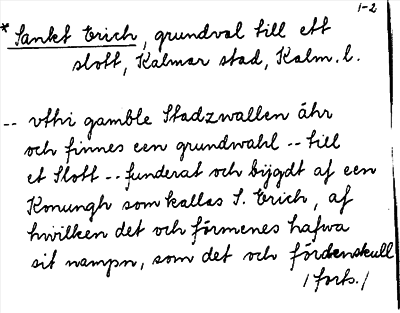 1-2
* Sankt Erich, grundval till ett
slott, Kalmar stad, Kalm. l.
-- vthi gamble Stadzwallen ähr
och finnes een grundwahl -- till
et Slott -- funderat och bijgdt af een
Konungh som kallas S. Erich, af
hwilken det och förmenes hafwa
sit nampn, som det och fördenskull
/forts./